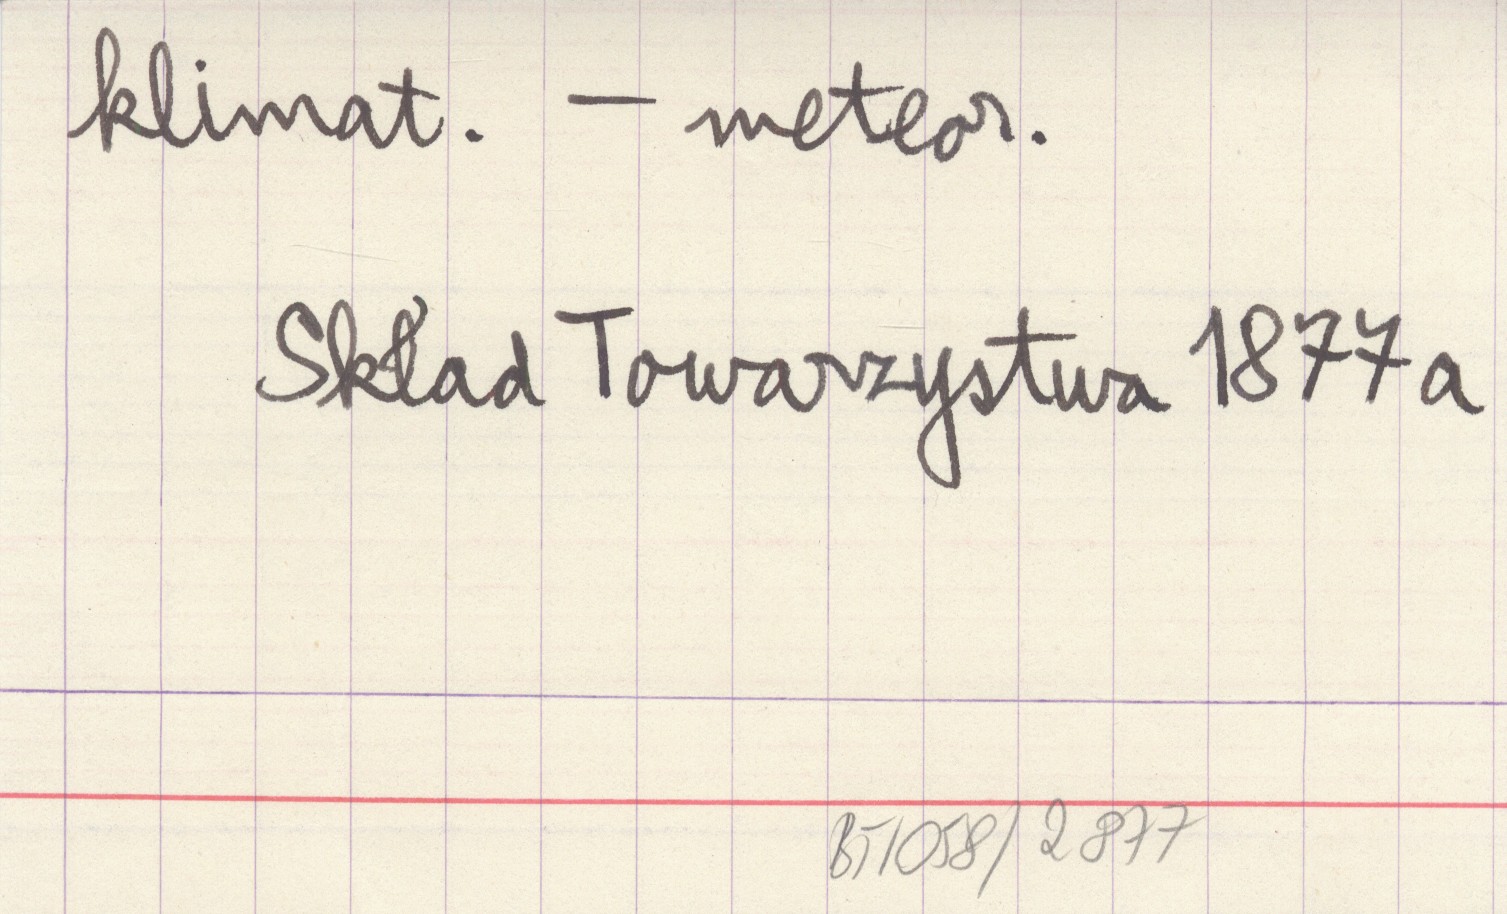 klimat. – meteor.
Skład Towarzystwa 1877a
BT1058/2877